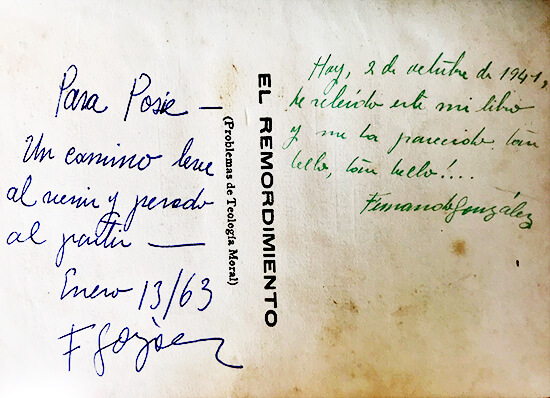 Para Posie —
Un camino leve
al venir y pesado
al partir —
Enero 13/63
EL REMORDIMIENTO
(Problemas de Teología Moral)
Hoy, 2 de octubre de 1941,
he releído este mi libro
y me ha parecido tan
bello, tan bello!...
Fernando González